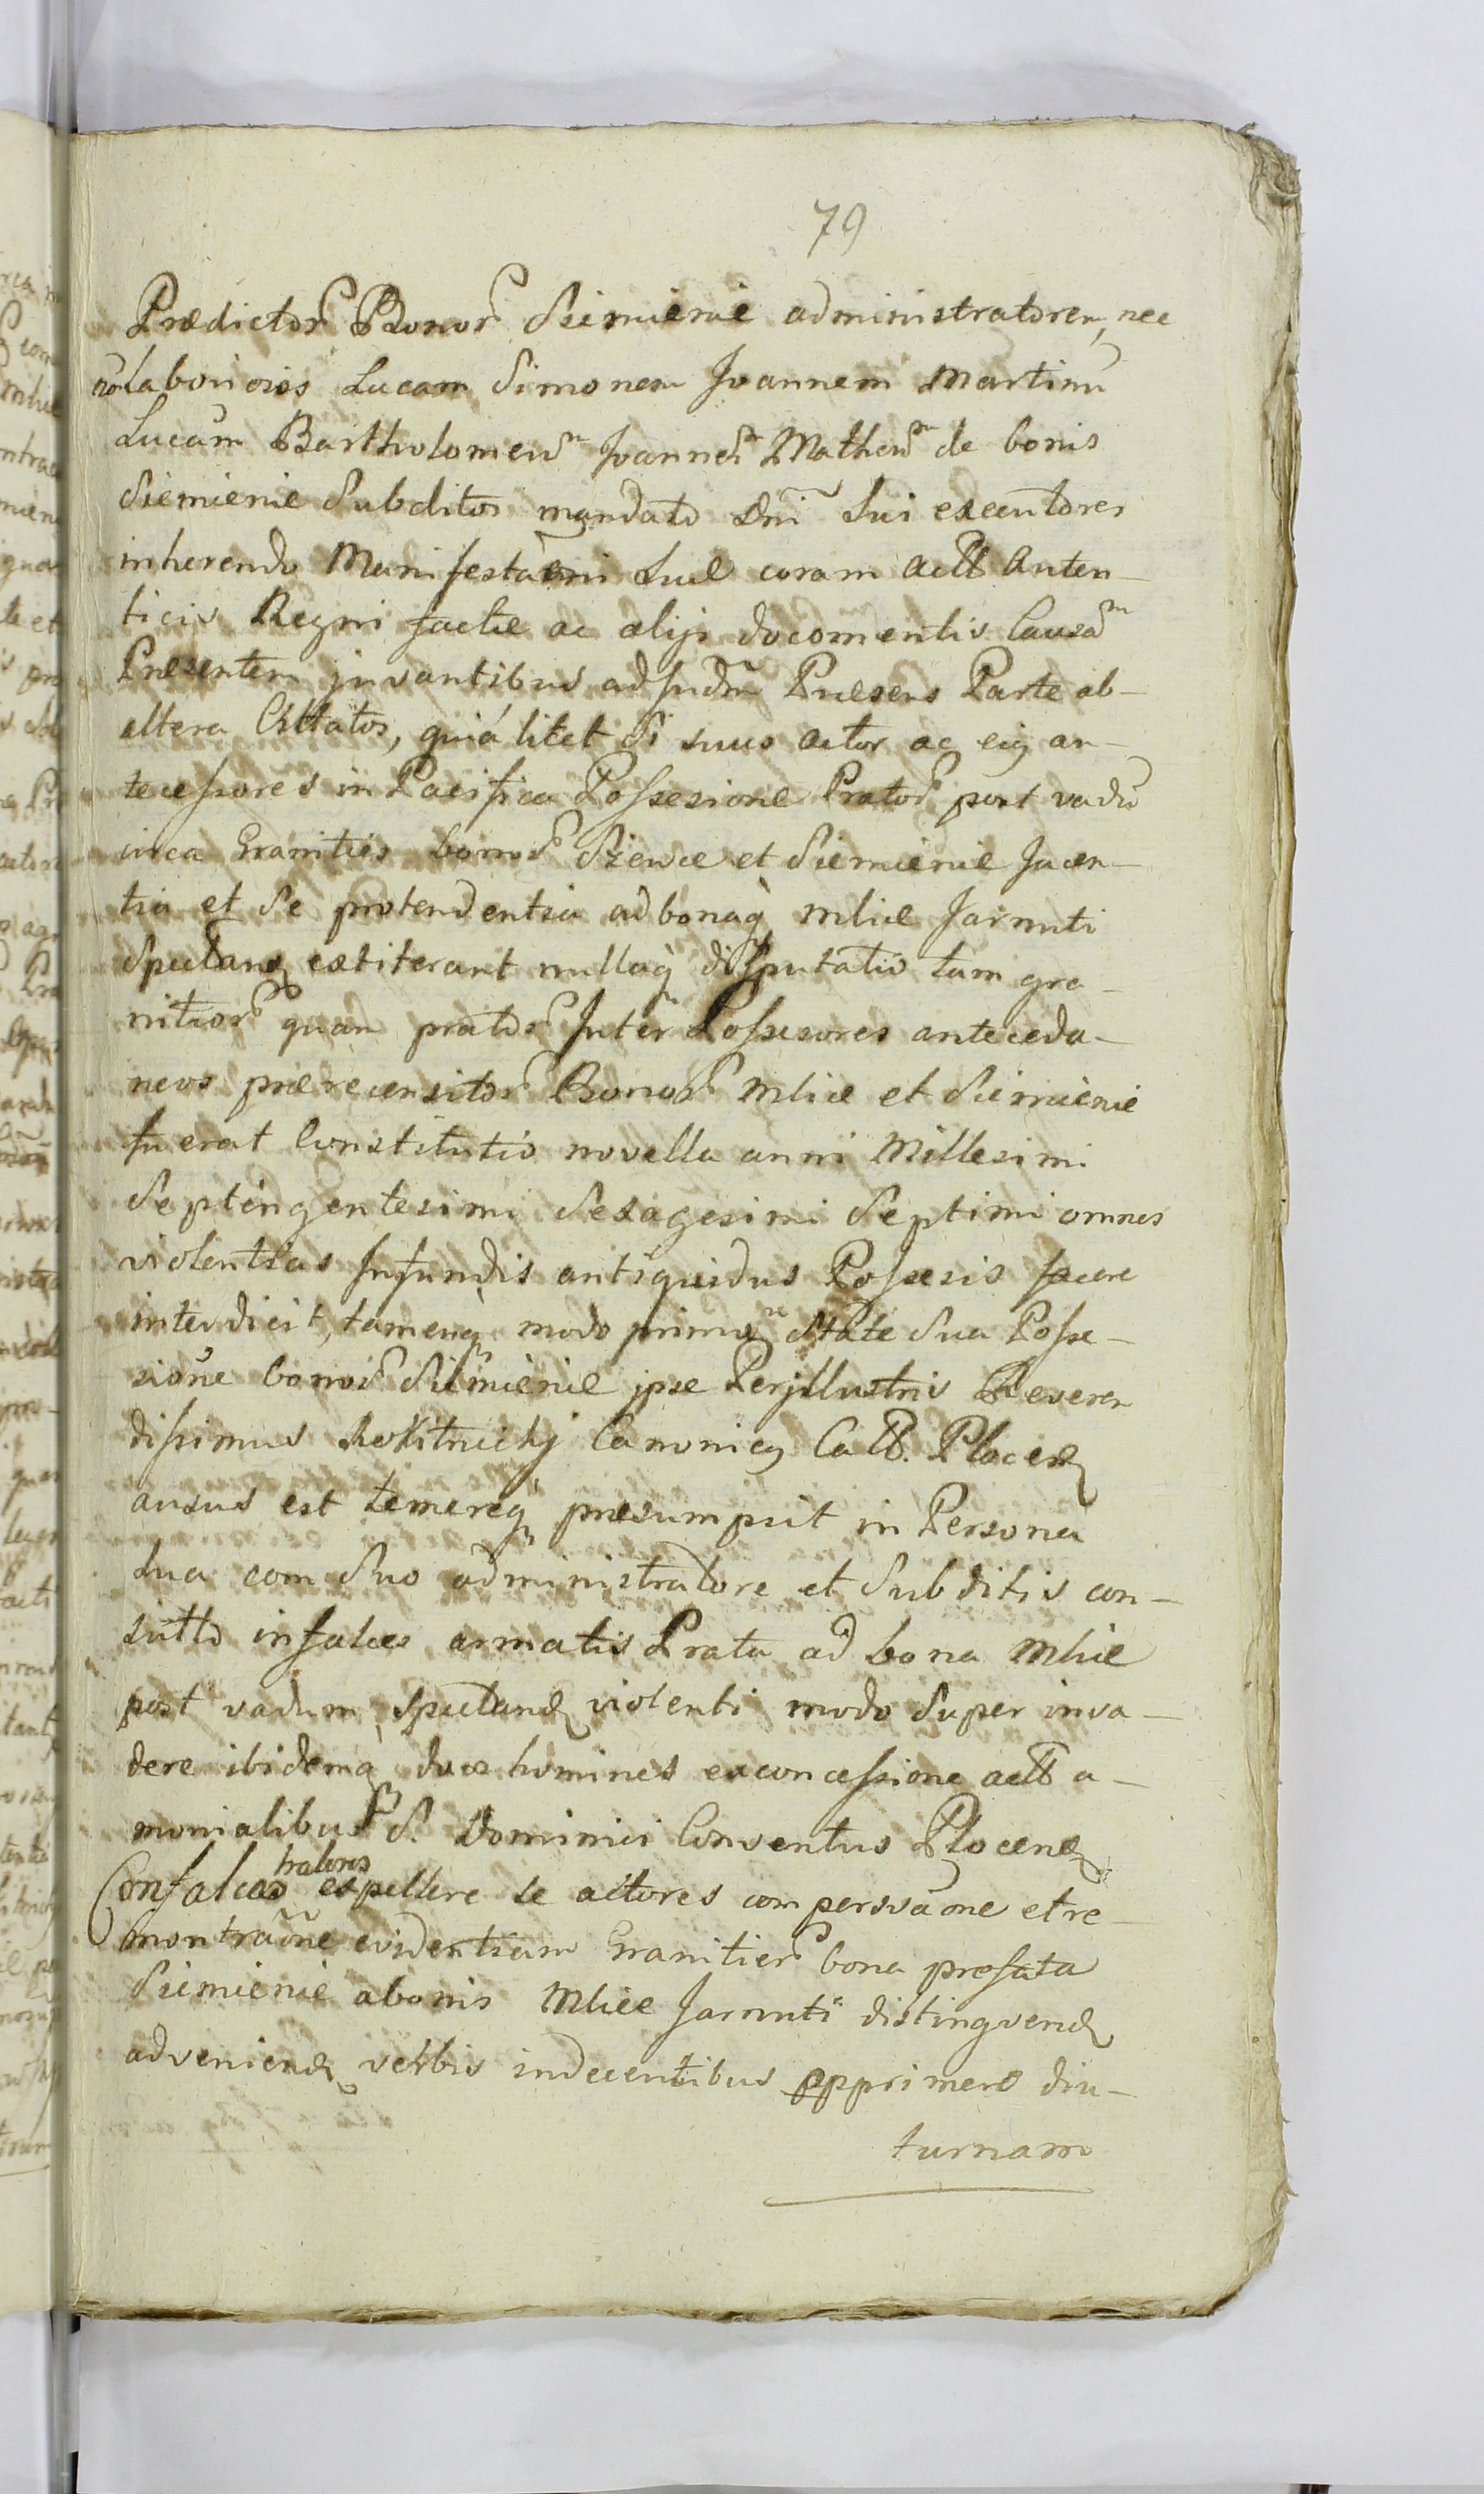 79
Prædictor Bonor Siemienie administratorem, nec
nõ laboriosos Lucam Simonem Joannem Martinũ
Lucam Bartholomeũ Joannem Matheũ de bonis
Siemienie Subditos mandato Dni Sui executores
inherendo Manifestaõni Suæ coram actis Auten-
ticis Regni factæ ac alijs documentis Causam
Præsentem juvantibus ad Judm Præsens Parte ab-
altera Cittatos, quiá licet Si suus Actor ac eiq an-
tecessores in Pacifica Possesione Prator post vadũ
circa Granities bonor et Siemienie Jacen-
tia et Se protendentia ad bonaq Mlice Jarnuti
Spectanq extiterant nullaq disputatio tam gra-
nitior quam prator Inter Possesores anteceda-
neos prærecensitor Bonor Mlice et Siemienie
fuerat Constitutio novella anni Millesimi
Septengentesimi Sexagesimi Septimi omnes
violentias In fundis antiquidus Possesis facere
interdicit, tamenq modo primæ State Sua Posse-
sione bonor Siemienie jpse Perjllustris Reveren
dissimus Canonicq Catt. Plocenq
ausus est temereq præsumpsit in Persona
Sua com Suo administratore et Subditis con-
sulto in falces armatis Prata ad bona Mlice
post vadum Spectanq violenti modo Super inva-
dere ibidemq duos homines ex concessione a-
monialibus S. Dominici Conventus Plocenq
trabores
Confalcas expellere se actores com persvaõne et re-
montraõne evidentiam Granitier bona præfata
Siemienie abonis Mlice Jarnuti distingvenq
advenienq verbis indecentibus opprimere diu-
turnam